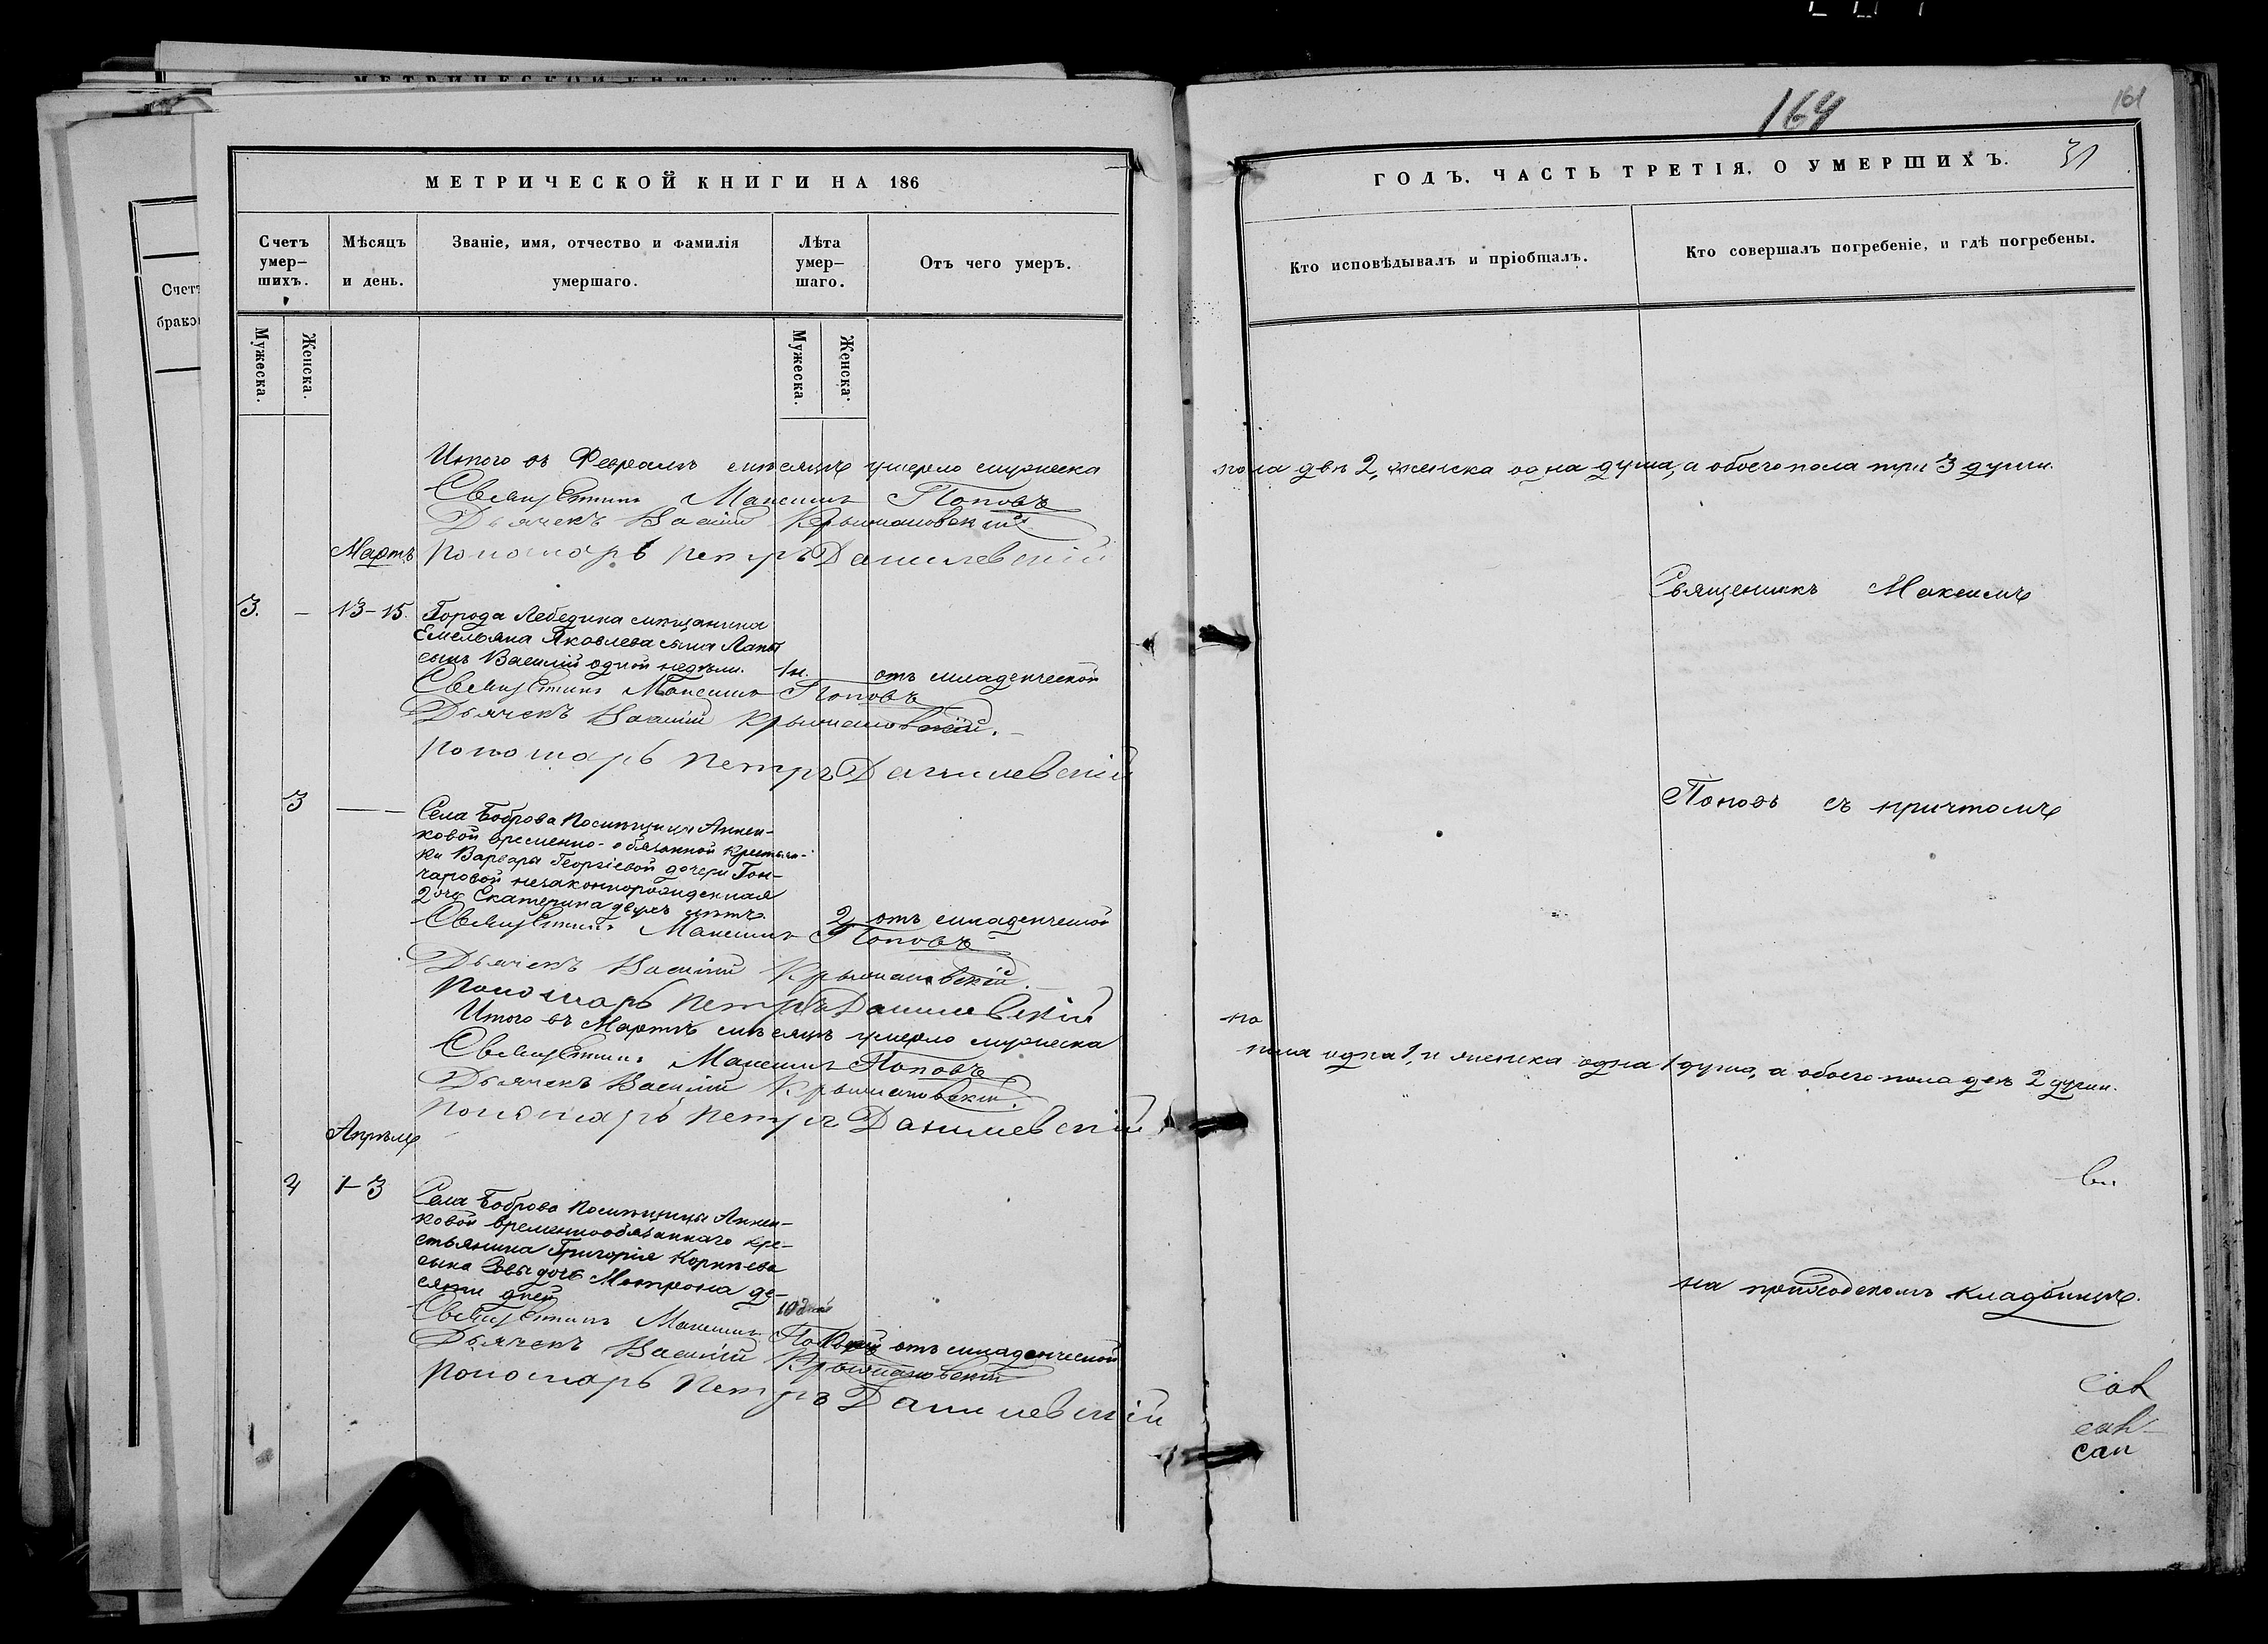 164
161
МЕТРИЧЕСКОЙ КНИГИ НА 186
ГОДЪ. ЧАСТЬ ТРЕТІЯ. О УМЕРШИХЪ. 31
Счетъ умер-шихъ.
Мѣсяцъ и день.
Званіе, имя, отчество и фамилія умершаго.
Лѣта умер-шаго.
Отъ чего умеръ.
Кто исповѣдывалъ и пріобщалъ.
Кто совершалъ погребеніе, и гдѣ погребены.
Мужеска. Женска. Мужеска. Женска.
Счетъ
Итого въ Февралѣ мѣсяцѣ умерло мужеска
пола двѣ 2, женска одна душа, а обоего пола три 3 души.
Максимъ Поповъ
Дьячекъ Крыжановскій
Мартъ
Пономарь Петръ Данилевскій
3. - 13-15. Города Лебедина мѣщанина
Емельяна Яковлева сына
сынъ Василій одной недѣли. 1 н. отъ младенческой
Максимъ Поповъ
Дьячекъ Крыжановскій.
Пономарь Петръ Данилевскій
Священникъ Максимъ
3 — Села Боброва Помѣщицы Аннен-
ковой временно-обязанной Крестьян-
ки Варвары Георгіевой дочери Гон-
чаровой незаконнорожденная
дочь Екатерина двухъ лѣтъ. 2 отъ младенческой
Максимъ Поповъ
Дьячекъ Крыжановскій.
Пономарь Петръ Данилевскій
Поповъ съ причтомъ
Итого въ Мартѣ мѣсяцѣ умерло мужеска
по
пола одна 1, и женска одна 1 душа, а обоего пола двѣ 2 души.
Максимъ Поповъ
Дьячекъ Крыжановскій.
Пономарь Петръ Данилевскій
Апрѣль
4 1-3 Села Боброва Помѣщицы Аннен-
ковой временнообязаннаго кре-
стьянина Григорія Корнѣева
сына дочь Матрона де-
сяти дней
отъ младенческой
Максимъ
Дьячекъ Крыжановскій
Пономарь Петръ Данилевскій
на приходскомъ кладбищѣ.